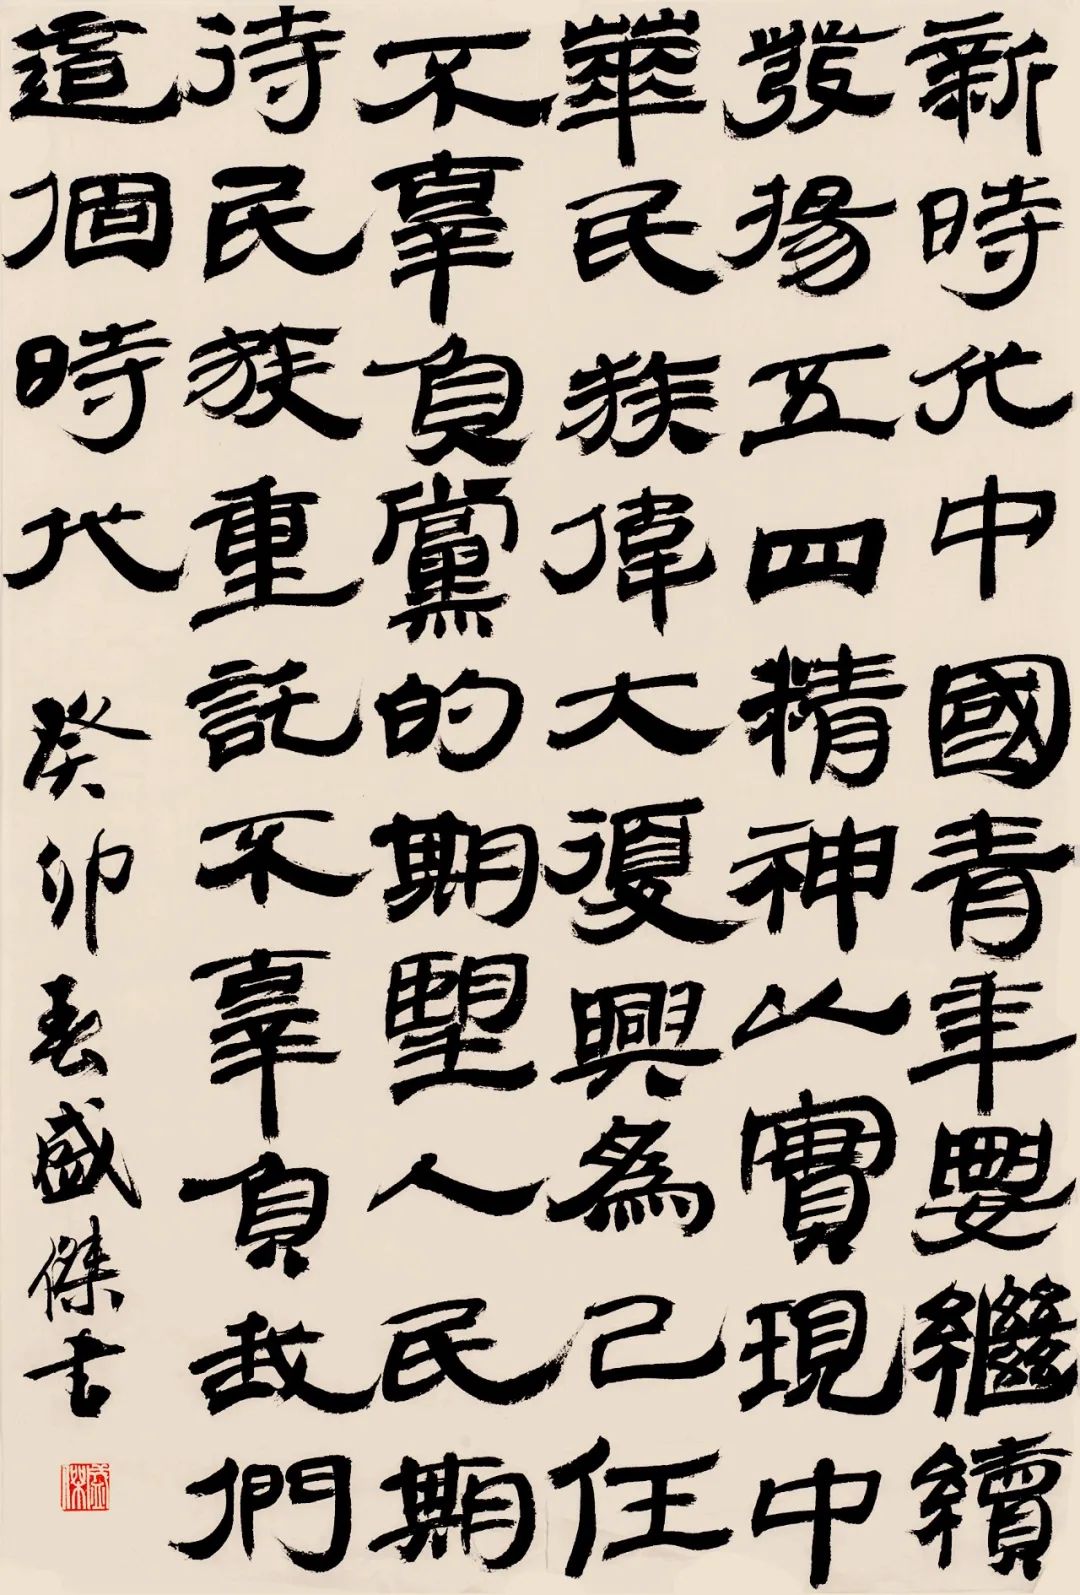 新時代中國青年要繼續
發揚五四精神以實現中
華民族偉大復興爲己任
不辜負黨的期望人民期
待民族重託不辜負我們
這個時代
癸卯春盛傑書
盛傑